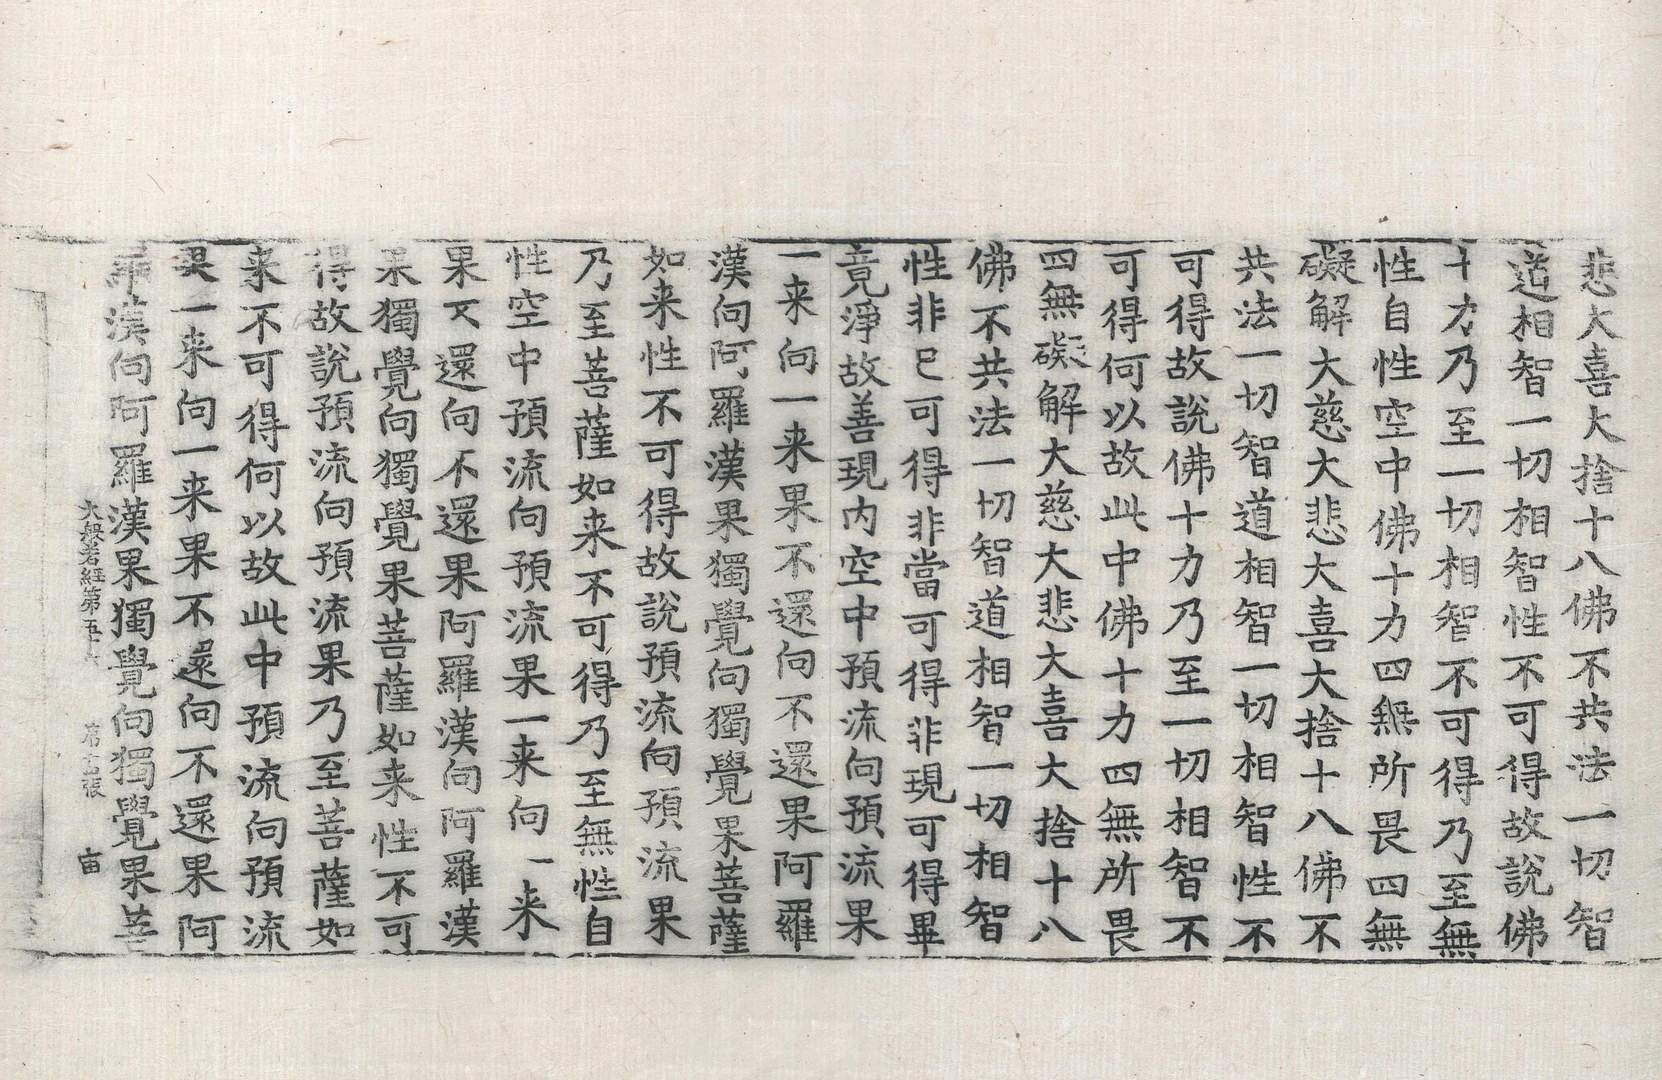 悲大喜大捨十八佛不共法一切智
道相智一切相智性不可得故說佛
十力乃至一切相智不可得乃至無
性自性空中佛十力四無所畏四無
礙解大慈大悲大喜大捨十八佛不
共法一切智道相智一切相智性不
可得故說佛十力乃至一切相智不
可得何以故此中佛十力四無所畏
四無礙解大慈大悲大喜大捨十八
佛不共法一切智道相智一切相智
性非已可得非當可得非現可得畢
竟淨故善現內空中預流向預流果
一来向一来果不還向不還果阿羅
漢向阿羅漢果獨覺向獨覺果菩薩
如来性不可得故說預流向預流果
乃至菩薩如来不可得乃至無性自
性空中預流向預流果一来向一来
果不還向不還果阿羅漢向阿羅漢
果獨覺向獨覺果菩薩如来性不可
得故說預流向預流果乃至菩薩如
来不可得何以故此中預流向預流
果一来向一来果不還向不還果阿
羅漢向阿羅漢果獨覺向獨覺果菩
大般若經第五十六 張 宙